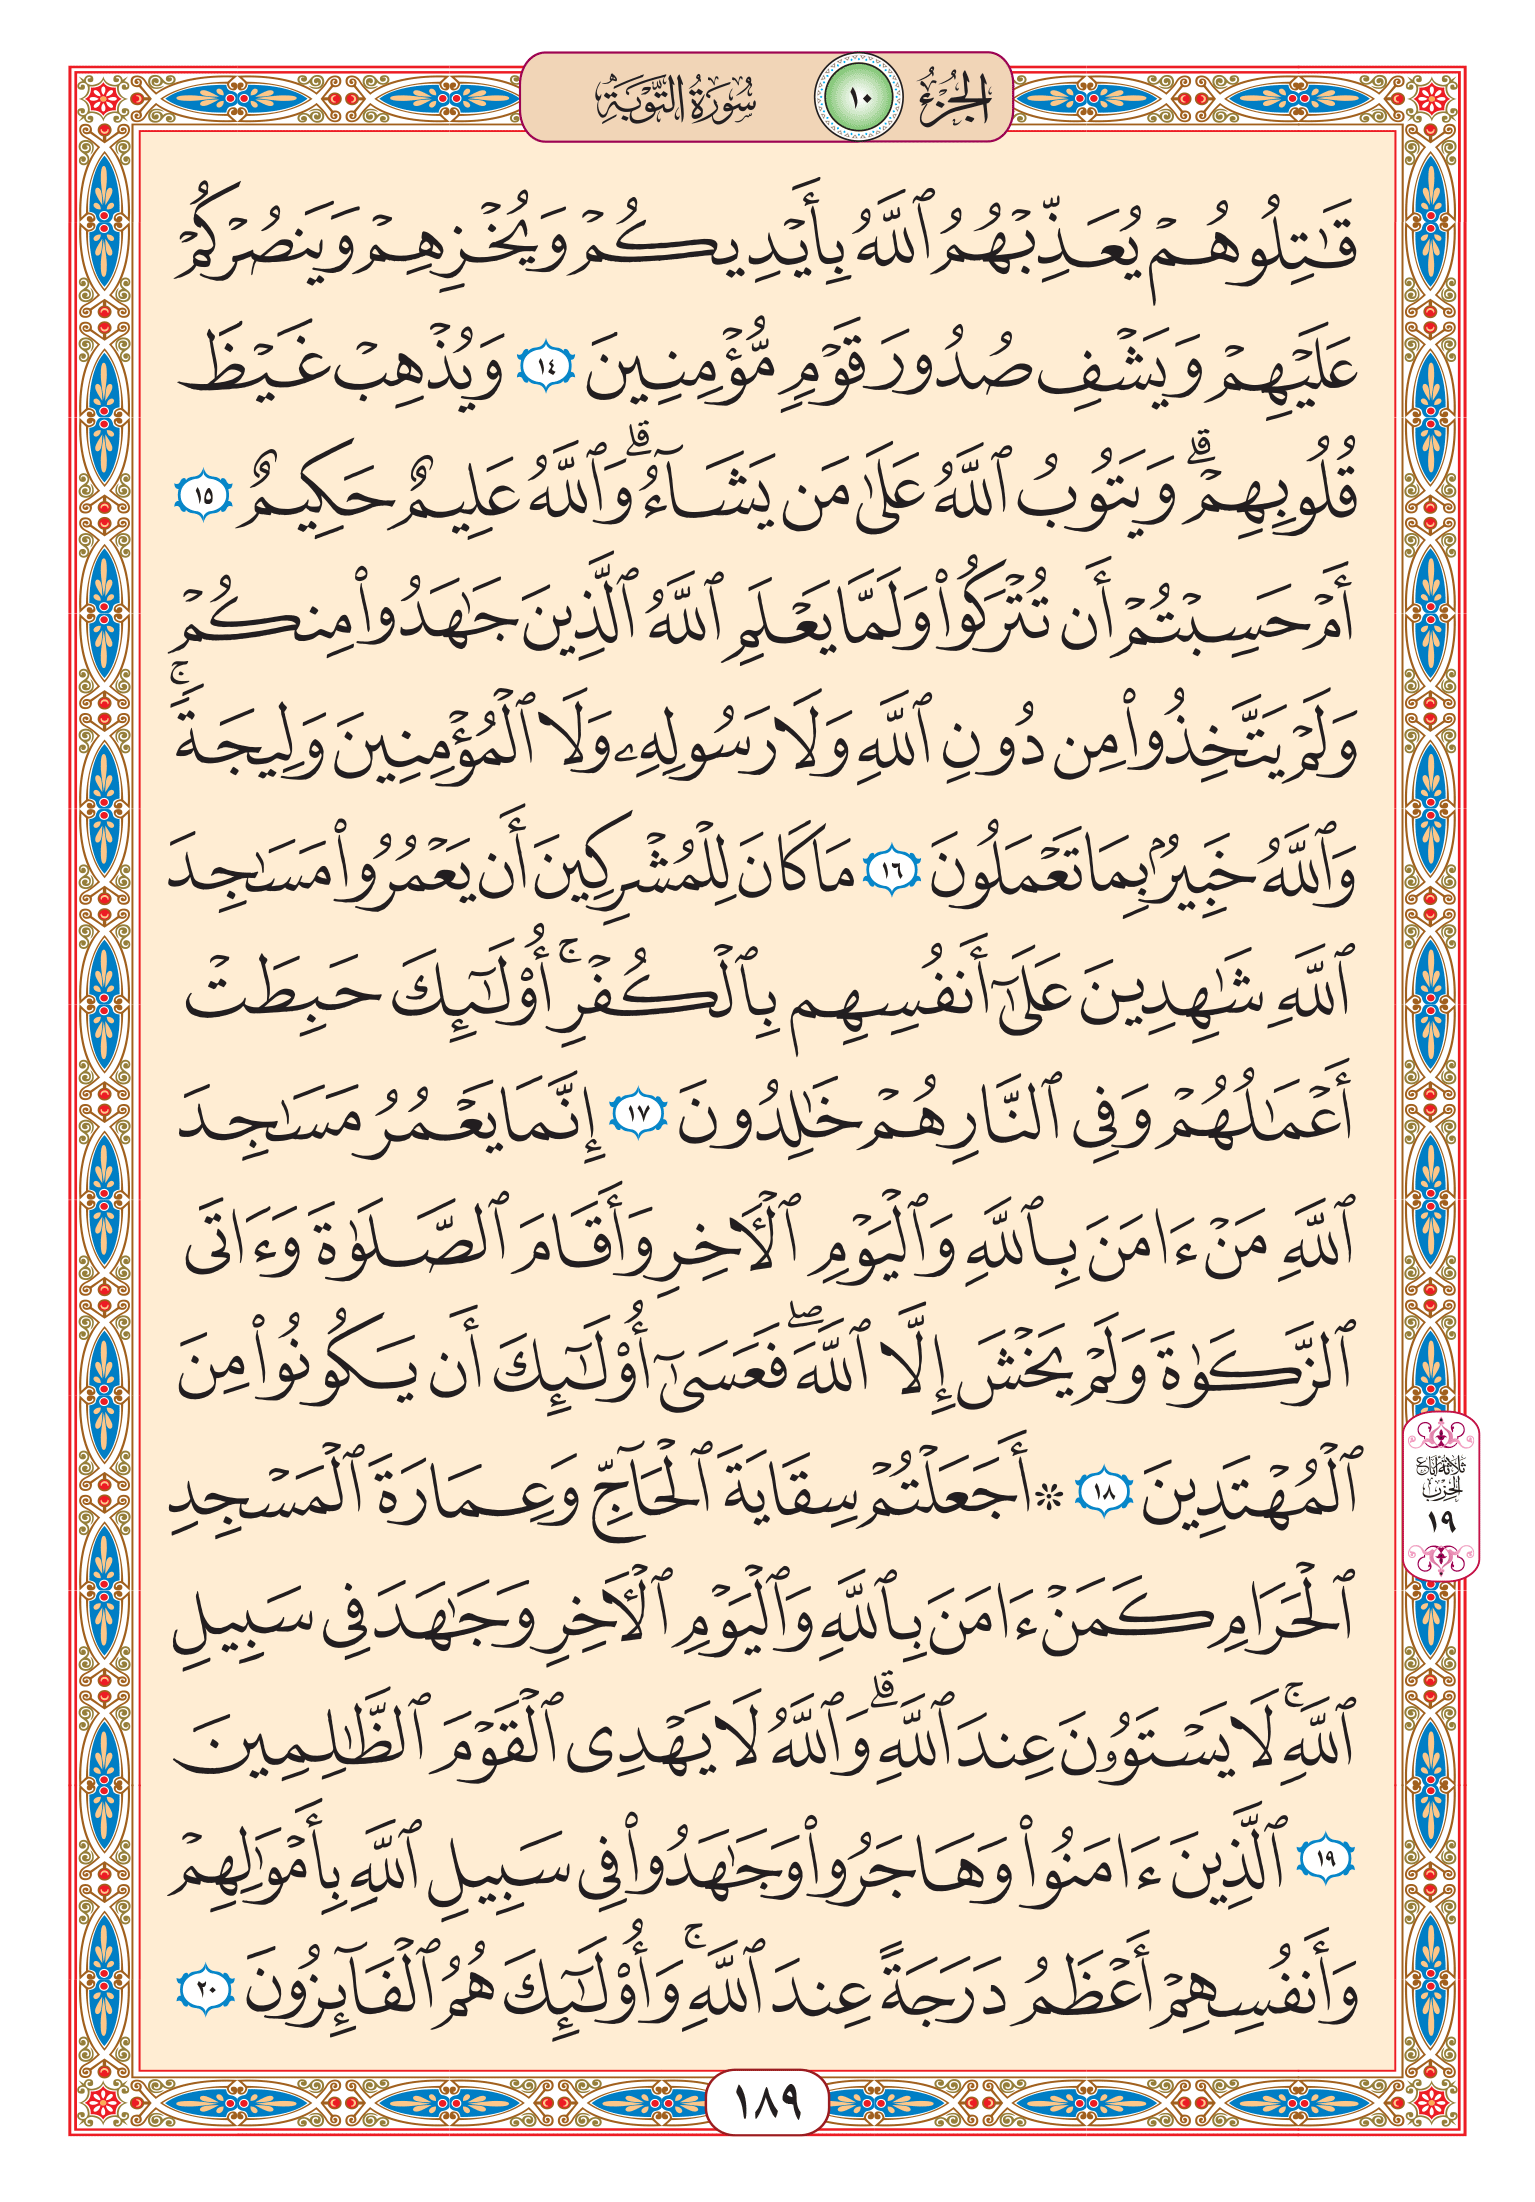 الجزء ١٠ سورة التوبة
قَٰتِلُوهُمْ يُعَذِّبْهُمُ ٱللَّهُ بِأَيْدِيكُمْ وَيُخْزِهِمْ وَيَنصُرْكُمْ
عَلَيْهِمْ وَيَشْفِ صُدُورَ قَوْمٍ مُّؤْمِنِينَ ١٤ وَيُذْهِبْ غَيْظَ
قُلُوبِهِمْ ۗ وَيَتُوبُ ٱللَّهُ عَلَىٰ مَن يَشَآءُ ۗ وَٱللَّهُ عَلِيمٌ حَكِيمٌ ١٥
أَمْ حَسِبْتُمْ أَن تُتْرَكُوا۟ وَلَمَّا يَعْلَمِ ٱللَّهُ ٱلَّذِينَ جَٰهَدُوا۟ مِنكُمْ
وَلَمْ يَتَّخِذُوا۟ مِن دُونِ ٱللَّهِ وَلَا رَسُولِهِۦ وَلَا ٱلْمُؤْمِنِينَ وَلِيجَةً ۚ
وَٱللَّهُ خَبِيرٌۢ بِمَا تَعْمَلُونَ ١٦ مَا كَانَ لِلْمُشْرِكِينَ أَن يَعْمُرُوا۟ مَسَٰجِدَ
ٱللَّهِ شَٰهِدِينَ عَلَىٰٓ أَنفُسِهِم بِٱلْكُفْرِ ۚ أُو۟لَٰٓئِكَ حَبِطَتْ
أَعْمَٰلُهُمْ وَفِى ٱلنَّارِ هُمْ خَٰلِدُونَ ١٧ إِنَّمَا يَعْمُرُ مَسَٰجِدَ
ٱللَّهِ مَنْ ءَامَنَ بِٱللَّهِ وَٱلْيَوْمِ ٱلْءَاخِرِ وَأَقَامَ ٱلصَّلَوٰةَ وَءَاتَى
ٱلزَّكَوٰةَ وَلَمْ يَخْشَ إِلَّا ٱللَّهَ ۖ فَعَسَىٰٓ أُو۟لَٰٓئِكَ أَن يَكُونُوا۟ مِنَ
ٱلْمُهْتَدِينَ ١٨ ۞ أَجَعَلْتُمْ سِقَايَةَ ٱلْحَآجِّ وَعِمَارَةَ ٱلْمَسْجِدِ
ثلاثة أرباع
الحزب
١٩
ٱلْحَرَامِ كَمَنْ ءَامَنَ بِٱللَّهِ وَٱلْيَوْمِ ٱلْءَاخِرِ وَجَٰهَدَ فِى سَبِيلِ
ٱللَّهِ ۚ لَا يَسْتَوُۥنَ عِندَ ٱللَّهِ ۗ وَٱللَّهُ لَا يَهْدِى ٱلْقَوْمَ ٱلظَّٰلِمِينَ
١٩ ٱلَّذِينَ ءَامَنُوا۟ وَهَاجَرُوا۟ وَجَٰهَدُوا۟ فِى سَبِيلِ ٱللَّهِ بِأَمْوَٰلِهِمْ
وَأَنفُسِهِمْ أَعْظَمُ دَرَجَةً عِندَ ٱللَّهِ ۚ وَأُو۟لَٰٓئِكَ هُمُ ٱلْفَآئِزُونَ ٢٠
١٨٩